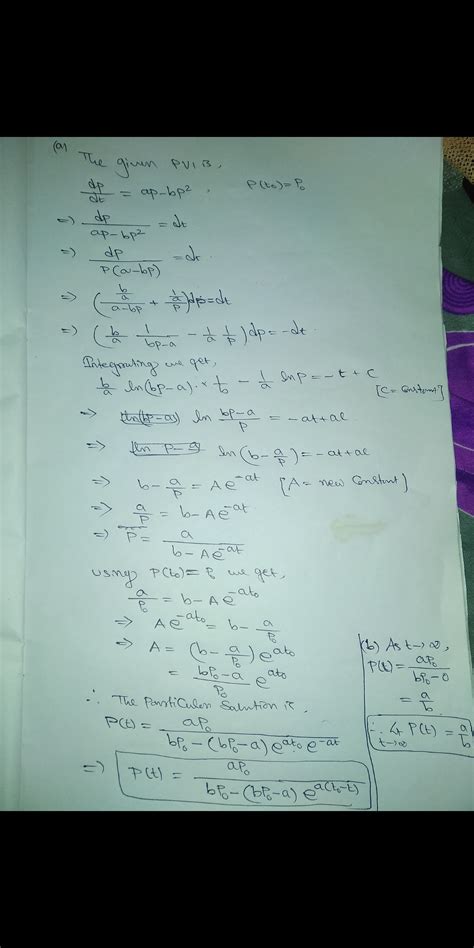 (a) The given PVI B,
dp/dt = ap-bp², P(t₀)=P₀
=> dp/(ap-bp²) = dt
=> dp/(P(a-bp)) = dt
=> ((b/a)/(a-bp) + (1/a)/p)dp = dt
=> (b/a 1/(bp-a) - 1/a 1/p)dp = -dt
Integrating we get,
b/a ln(bp-a) · × 1/b - 1/a lnp = -t+C
[C = Constant]
=> ln (bp-a)/p = -at+ac
=> ln(b - a/p) = -at+ac
=> b - a/p = Ae^(-at) [A = new Constant)
=> a/p = b - Ae^(-at)
=> P = a/(b - Ae^(-at))
using P(t₀) = P₀ we get,
a/P₀ = b - Ae^(-at₀)
=> Ae^(-at₀) = b - a/P₀
=> A = (b - a/P₀) e^(at₀)
= (bP₀-a)/P₀ e^(at₀)
∴ The Particular Solution is,
P(t) = aP₀/(bP₀ - (bP₀-a) e^(at₀) e^(-at))
=> P(t) = aP₀/(bP₀ - (bP₀-a) e^(a(t₀-t)))
(b) As t→∞,
P(t) = aP₀/(bP₀-0)
= a/b
∴ Lt t→∞ P(t) = a/b